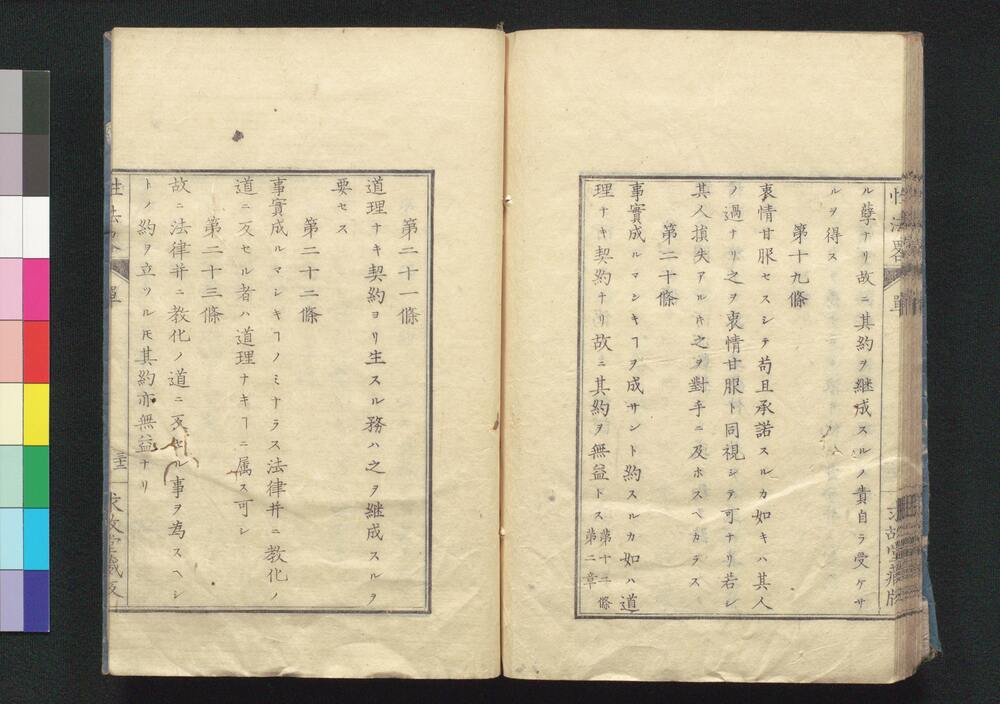 ル孽ナリ故ニ其約ヲ継成スルノ責自ラ受ケサ
ルヲ得ス
第十九條
衷情甘服セスシテ苟且承諾スルカ如キハ其人
ノ過ナリ之ヲ衷情甘服ト同視シテ可ナリ若シ
其人損失アルモ之ヲ對手ニ及ホスヘカラス
第二十條
事實成ルマシキヿヲ成サント約スルカ如ハ道
理ナキ契約ナリ故ニ其約ヲ無益トス第十二條第二章
性法略
單
求故堂藏版
第二十一條
道理ナキ契約ヨリ生スル務ハ之ヲ継成スルヲ
要セス
第二十二條
事實成ルマシキヿノミナラス法律并ニ教化ノ
道ニ反セル者ハ道理ナキヿニ属ス可シ
第二十三條
故ニ法律并ニ教化ノ道ニ反セル事ヲ為スヘシ
トノ約ヲ立ツルモ其約亦無益ナリ
性法略
單
求故堂藏版